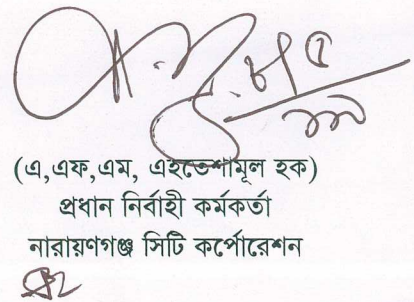 (এ,এফ,এম, এহতেশামূল হক)
প্রধান নির্বাহী কর্মকর্তা
নারায়ণগঞ্জ সিটি কর্পোরেশন